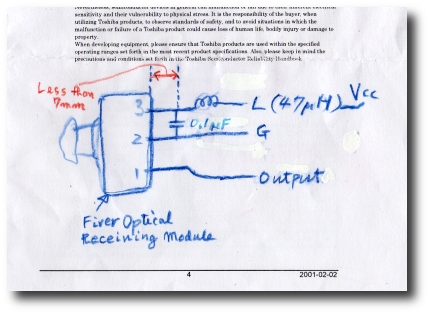 Nevertheless, semiconductor devices in general can malfunction or fail due to their inherent electrical
sensitivity and their vulnerability to physical stress. It is the responsibility of the buyer, when
utilizing Toshiba products, to observe standards of safety, and to avoid situations in which the
malfunction or failure of a Toshiba product could cause loss of human life, bodily injury or damage to
property.
When developing equipment, please ensure that Toshiba products are used within the specified
operating ranges set forth in the most recent product specifications. Also, please keep in mind the
precautions and conditions set forth in the Toshiba Semiconductor Reliability Handbook.
Less than
7mm
3
L (47μH)
Vcc
0.1μF
2
G
1
Output
Fiver Optical
Receining Module
4
2001-02-02